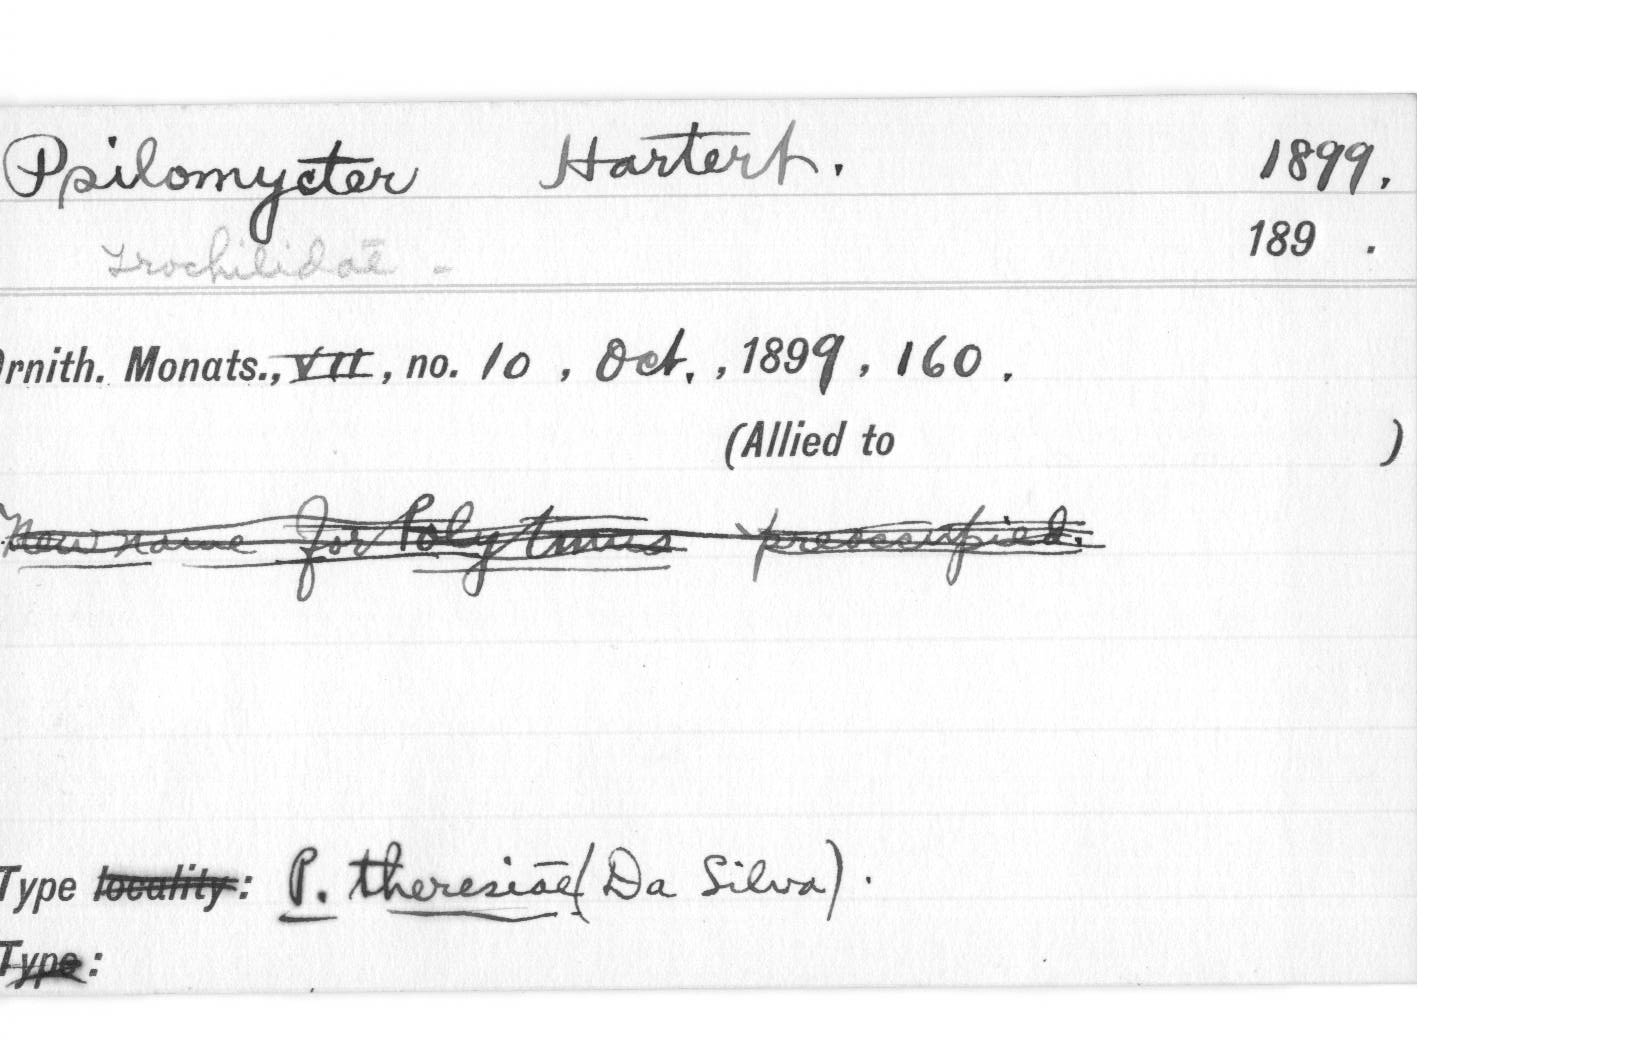 Psilomycter Hartert. 1899.
Trochilidae - 189 .
Ornith. Monats., VII, no. 10, Oct., 1899, 160.
(Allied to )
New name for Polytmus preoccupied.
Type locality: P. theresiae (Da Silva).
Type: